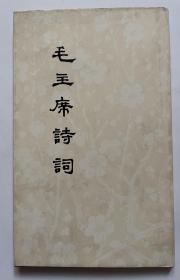 毛主席詩詞